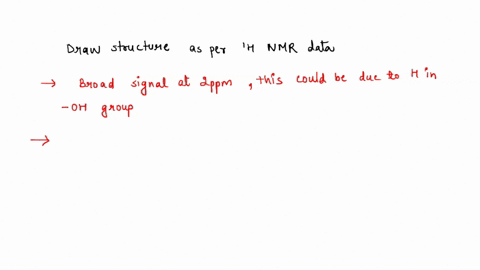 Draw structure as per ¹H NMR data
→ Broad signal at 2ppm, this could be due to H in
-OH group
→